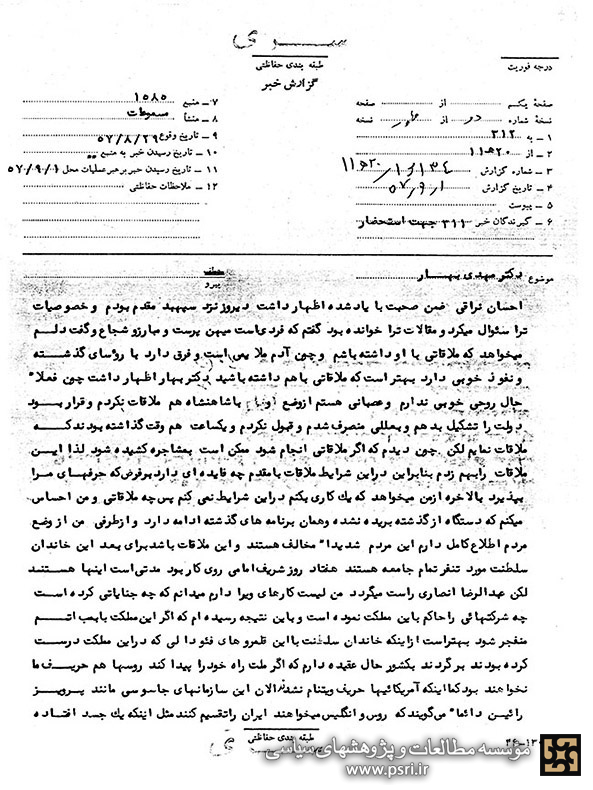 سـری
طبقه بندی حفاظتی
گزارش خبر
درجه فوریت
صفحهٔ یکم از صفحه
نسخهٔ شماره دو از چهار نسخه
۱ ـ به ۳۱۲
۲ ـ از ۲۰ھ۱۱
۳ ـ شماره گزارش
۴ ـ تاریخ گزارش ۵۷/۹/۱
۵ ـ پیوست
۶ ـ گیرندگان خبر ۳۱۱ جهت استحضار
۷ ـ منبع ۱۵۸۵
۸ ـ منشأ مسموعات
۹ ـ تاریخ وقوع ۵۷/۸/۲۹
۱۰ ـ تاریخ رسیدن خبر به منبع ""
۱۱ ـ تاریخ رسیدن خبر برهبر عملیات محل ۵۷/۹/۱
۱۲ ـ ملاحظات حفاظتی
موضوع دکتر مهدی بهار
عطف
پیرو
احسان نراقی ضمن صحبت با یاد شده اظهار داشت دیروز نزد سپهبد مقدم بودم و خصوصیات
ترا سئوال میکرد و مقالات ترا خوانده بود گفتم که فردی است میهن پرست و مبارز و شجاع و گفت دلم
میخواهد که ملاقاتی با او داشته باشم و چون آدم ملایمی است و فرق دارد با رؤسای گذشته
و نفوذ خوبی دارد بهتر است که ملاقاتی با هم داشته باشید دکتر بهار اظهار داشت چون فعلا"
حال روحی خوبی ندارم و عصبانی هستم از وضع با شاهنشاه هم ملاقات نکردم و قرار بود
دولت را تشکیل بدهم و بعللی منصرف شدم و قبول نکردم و یکساعت هم وقت گذاشته بودند که
ملاقات نمایم لکن چون دیدم که اگر ملاقاتی انجام شود ممکن است بمشاجره کشیده شود لذا این
ملاقات را بهم زدم بنابراین در این شرایط ملاقات با مقدم چه فایده ای دارد بر فرض که حرفهای مرا
بپذیرد بالاخره از من میخواهد که یک کاری بکنم در این شرایط نمی کنم پس چه ملاقاتی و من احساس
میکنم که دستگاه از گذشته بریده نشده و همان برنامه های گذشته ادامه دارد و از طرفی من از وضع
مردم اطلاع کامل دارم این مردم شدیدا" مخالف هستند و این ملاقات باشد برای بعد این خاندان
سلطنت مورد تنفر تمام جامعه هستند هفتاد روز شریف امامی روی کار بود مدتی است اینها هستند
لکن عبدالرضا انصاری راست میگردد من لیست کارهای ویرا دارم میدانم که چه جنایاتی کرده است
چه شرکتهائی را حاکم با این مملکت نموده است و باین نتیجه رسیده ام که اگر این مملکت با بمب اتم
منفجر شود بهتر است از اینکه خاندان سلطنت با این قلمروهای فئودالی که در این مملکت درست
کرده بودند برگردند بکشور حال عقیده دارم که اگر ملت راه خود را پیدا کند روسها هم حریف ما
نخواهند بود کما اینکه آمریکائیها حریف ویتنام نشدند الان این سازمانهای جاسوسی مانند پرویز
رائین دائما" میگویند که روس و انگلیس میخواهند ایران را تقسیم کنند مثل اینکه یک جسد افتاده
طبقه بندی حفاظتی
سـری
موسسه مطالعات و پژوهشهای سیاسی
www.psri.ir